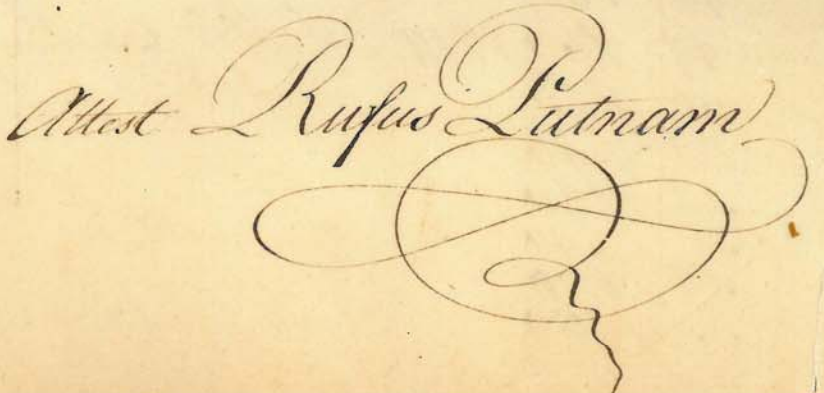 Attest Rufus Putnam